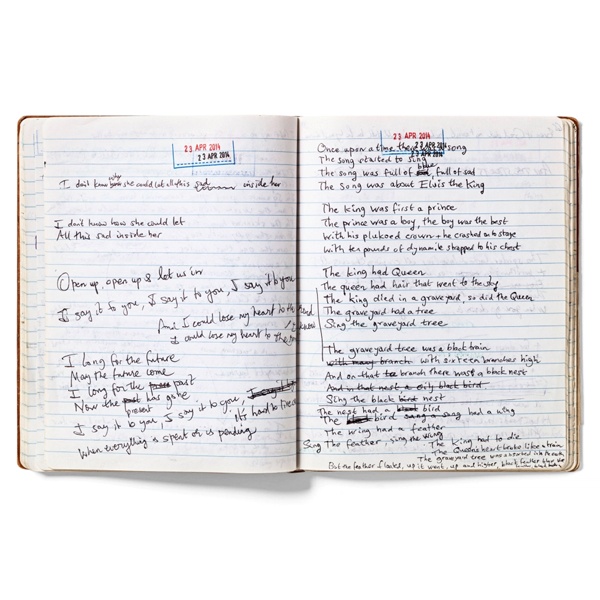 23 APR 2014
23 APR 2014
I don't know how she could let all this sad inside her
I don't know how she could let
All this sad inside her
Open up, open up & let us in
I say it to you, I say it to you, I say it to you
And I could lose my heart to the
I could lose my heart to the
I long for the future
May the future come
I long for the past
Now the past has gone
present
I say it to you, I say it to you,
It's hard to
When everything is spent or is pending
23 APR 2014
23 APR 2014
Once upon a time there was a song
The song started to sing
blue
The song was full of sad, full of sad
The song was about Elvis the King
The king was first a prince
The prince was a boy, the boy was the best
With his plukoed crown & he crashed on to stage
With ten pounds of dynamite strapped to his chest
The king had Queen
The queen had hair that went to the sky
The king died in a graveyard, so did the Queen
The graveyard had a tree
Sing the graveyard tree
The graveyard tree was a black train
with many branch with sixteen branches high
And on that branch there was a black nest
And in that nest a oily black bird
Sing the black bird nest
The nest had a black bird
The black bird sang a song had a wing
The wing had a feather
Sing The feather, sing the wing
The king had to die
The Queen's heart broke like a train
The graveyard tree was
But the feather floated, up it went, up and higher, black feather